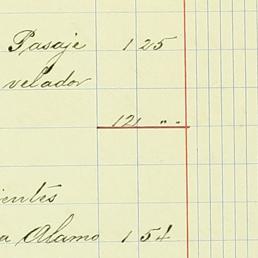 Pasaje 1 25
velador
121 " "
ientes
a Alamo 1 54